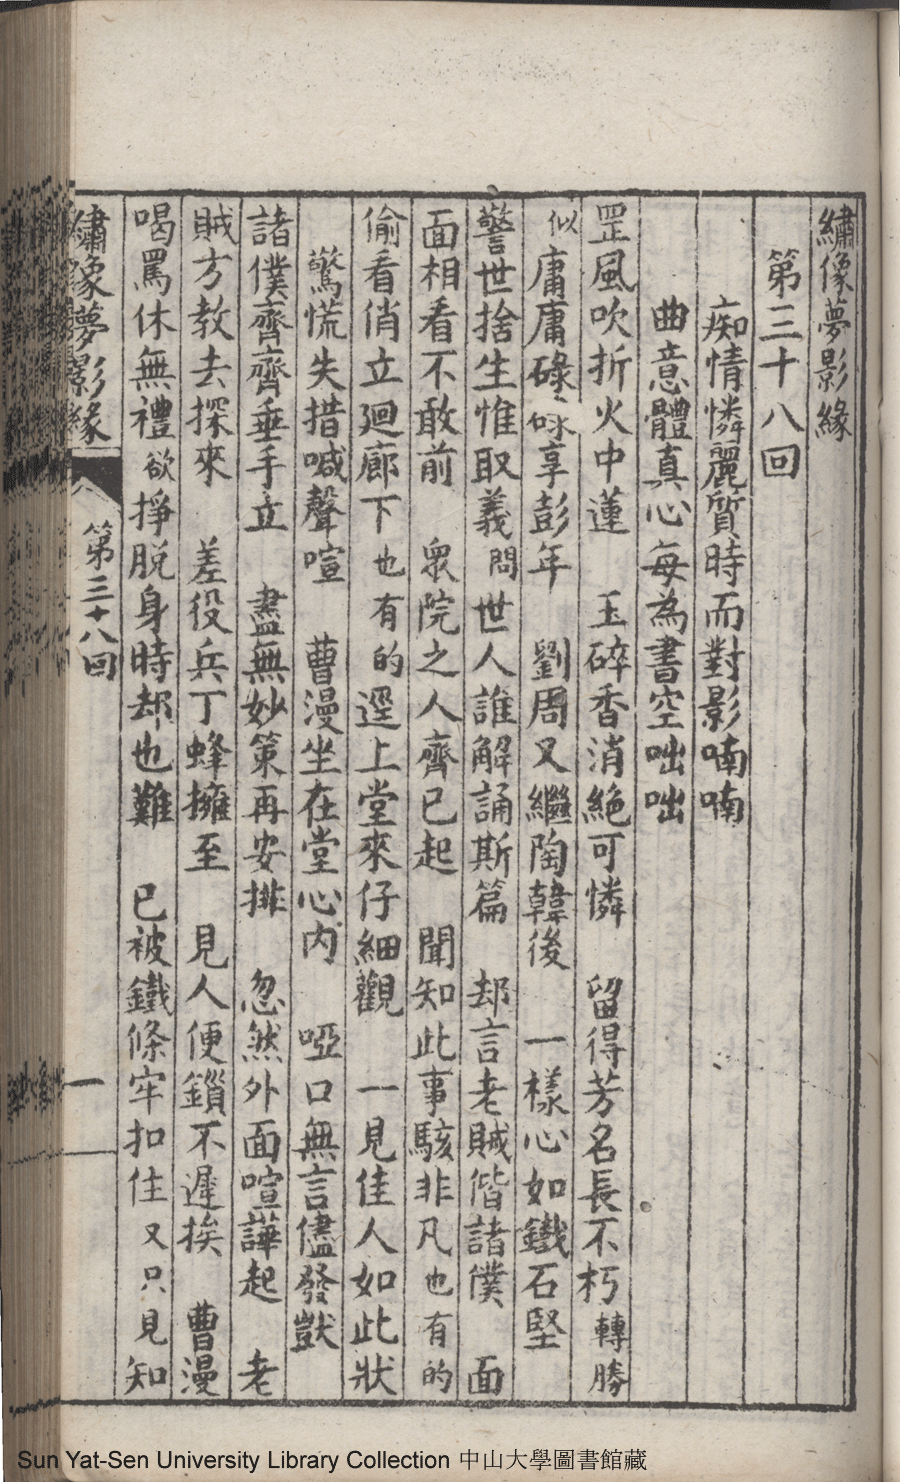 繡像夢影緣
第三十八回
痴情憐麗質時而對影喃喃
曲意體真心每為書空咄咄
罡風吹折火中蓮　玉碎香消絕可憐　留得芳名長不朽　轉勝
似庸庸碌碌享彭年　劉周又繼陶韓後　一樣心如鐵石堅
警世捨生惟取義　問世人誰解誦斯篇　却言老賊偕諸僕　面
面相看不敢前　衆院之人齊已起　聞知此事駭非凡　也有的
偷看俏立廻廊下　也有的逕上堂來仔細觀　一見佳人如此狀
驚慌失措喊聲喧　曹漫坐在堂心内　啞口無言儘發獃
諸僕齊齊垂手立　盡無妙策再安排　忽然外面喧譁起　老
賊方教去探來　差役兵丁蜂擁至　見人便鎖不遲挨　曹漫
喝罵休無禮　欲掙脱身時却也難　已被鐵條牢扣住　又只見知
繡像夢影緣　第三十八回　一
Sun Yat-Sen University Library Collection 中山大學圖書館藏